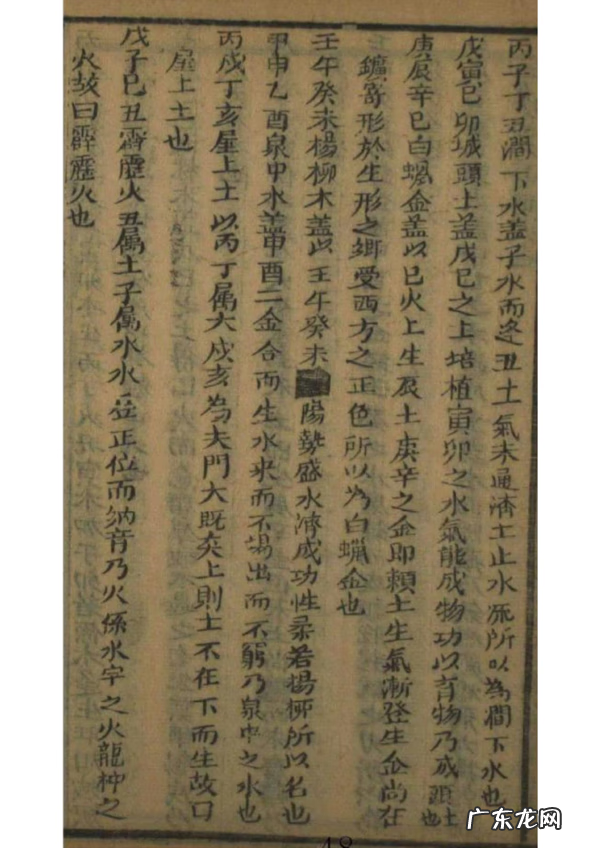 丙子丁丑澗下水蓋子水而逢丑土氣未通濟土止水死所以為澗下水也
戊寅已卯城頭土蓋戊已之上培植寅卯之水氣能成物功以育物乃成頭土也
庚辰辛巳白蝋金蓋以巳火上生辰土庚辛之金即賴土生氣漸登生金尚在
鑛寄形於生形之鄉受西方之正色所以為白蝋金也
壬午癸未楊柳木蓋以壬午癸未陽勢盛水濟成功性柔若楊柳所以名也
甲申乙酉泉中水蓋申酉二金合而生水來而不竭出而不窮乃泉中之水也
丙戌丁亥屋上土以丙丁属火戌亥為天門火既炎上則土不在下而生故曰
屋上土也
戊子巳丑霹靂火丑属土子属水水正位而納音乃火係水中之火龍神之
火故曰霹靂火也
48
广东龙网